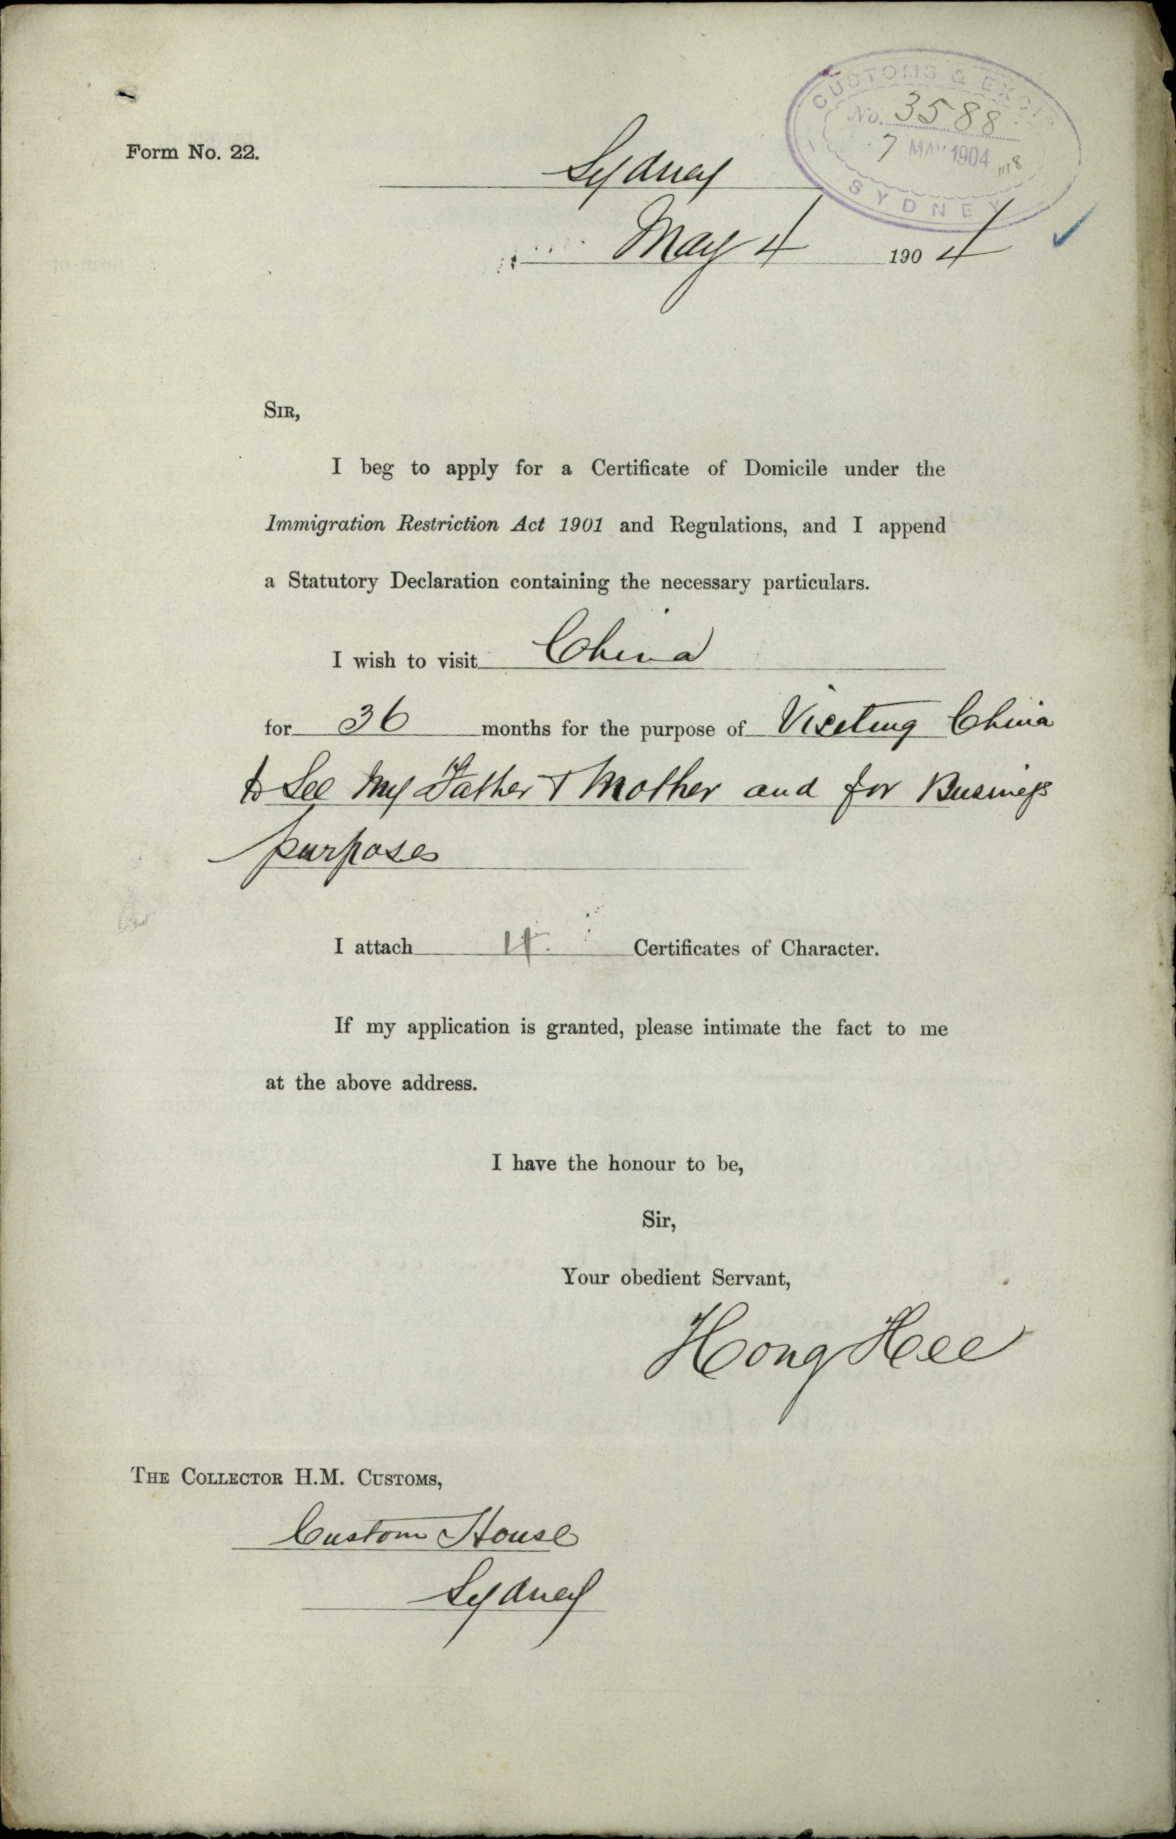 CUSTOMS & EXCISE
No. 3588
7 MAY 1904
SYDNEY
Form No. 22.
Sydney
May 4 1904
SIR,
I beg to apply for a Certificate of Domicile under the
Immigration Restriction Act 1901 and Regulations, and I append
a Statutory Declaration containing the necessary particulars.
I wish to visit China
for 36 months for the purpose of Visiting China
to See My Father & Mother and for Business
purposes
I attach 4. Certificates of Character.
If my application is granted, please intimate the fact to me
at the above address.
I have the honour to be,
Sir,
Your obedient Servant,
Hong Hee
THE COLLECTOR H.M. CUSTOMS,
Custom House
Sydney